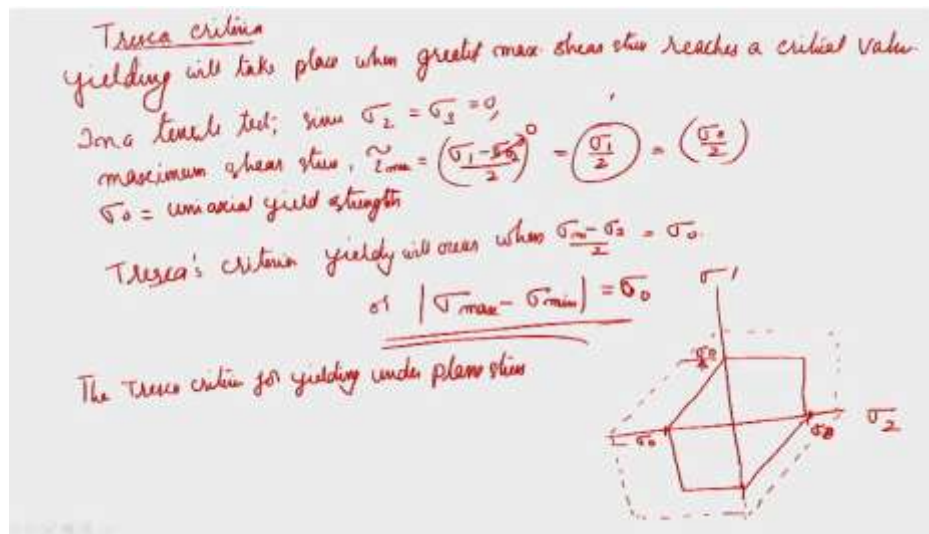 Tresca criteria
yielding will take place when greatest max. shear stress reaches a critical value.
In a tensile test; since σ₂ = σ₃ = 0,
maximum shear stress, τ_max = (σ₁ - σ₃ / 2)⁰ = (σ₁/2) = (σ₀/2)
σ₀ = uniaxial yield strength
Tresca's criterion yieldy will occur when = σ₀.
or |σ_max - σ_min| = σ₀
The Tresca criteria for yielding under plane stress
σ₁
σ₀
σ₀
σ₀
σ₂